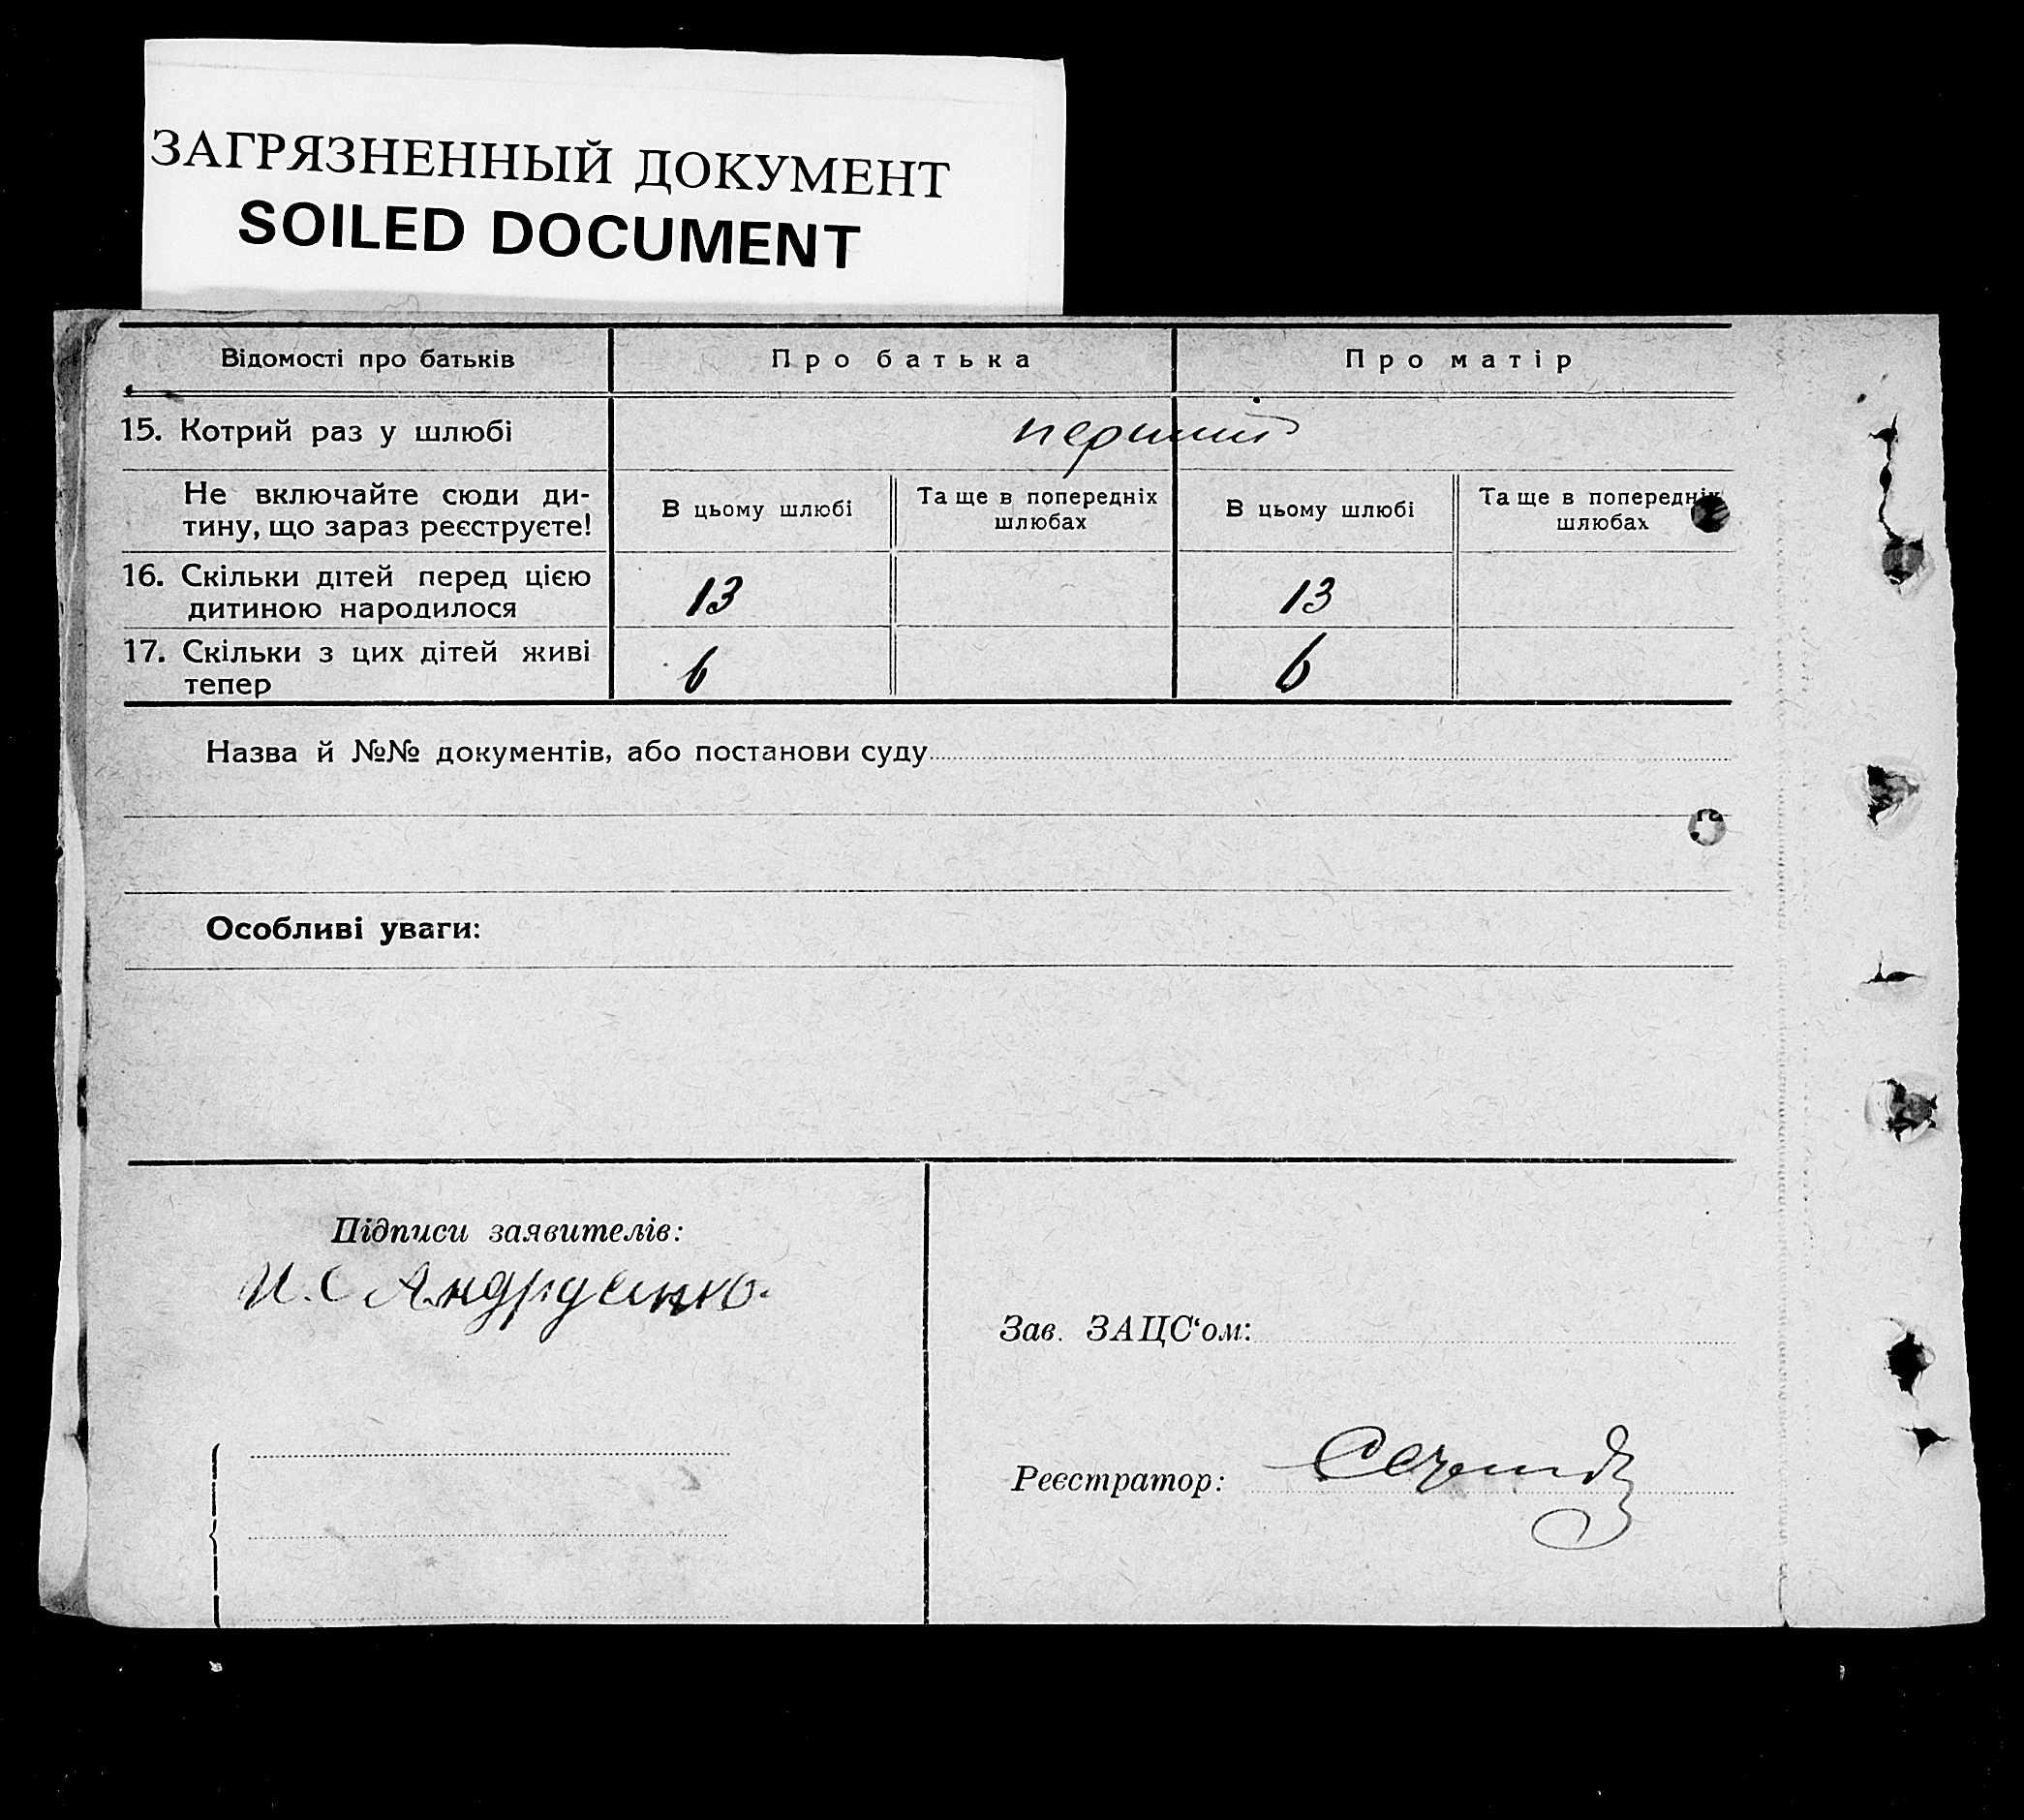 ЗАГРЯЗНЕННЫЙ ДОКУМЕНТ
SOILED DOCUMENT
Відомості про батьків Про батька Про матір
15. Котрий раз у шлюбі перший
Не включайте сюди ди-
тину, що зараз реєструєте!
В цьому шлюбі
Та ще в попередніх
шлюбах
В цьому шлюбі
Та ще в попередніх
шлюбах
16. Скільки дітей перед цією
дитиною народилося
13 13
17. Скільки з цих дітей живі
тепер
6 6
Назва й №№ документів, або постанови суду
Особливі уваги:
Підписи заявителів:
И. С Андрусенко.
Зав. ЗАЦС‘ом:
Реєстратор: